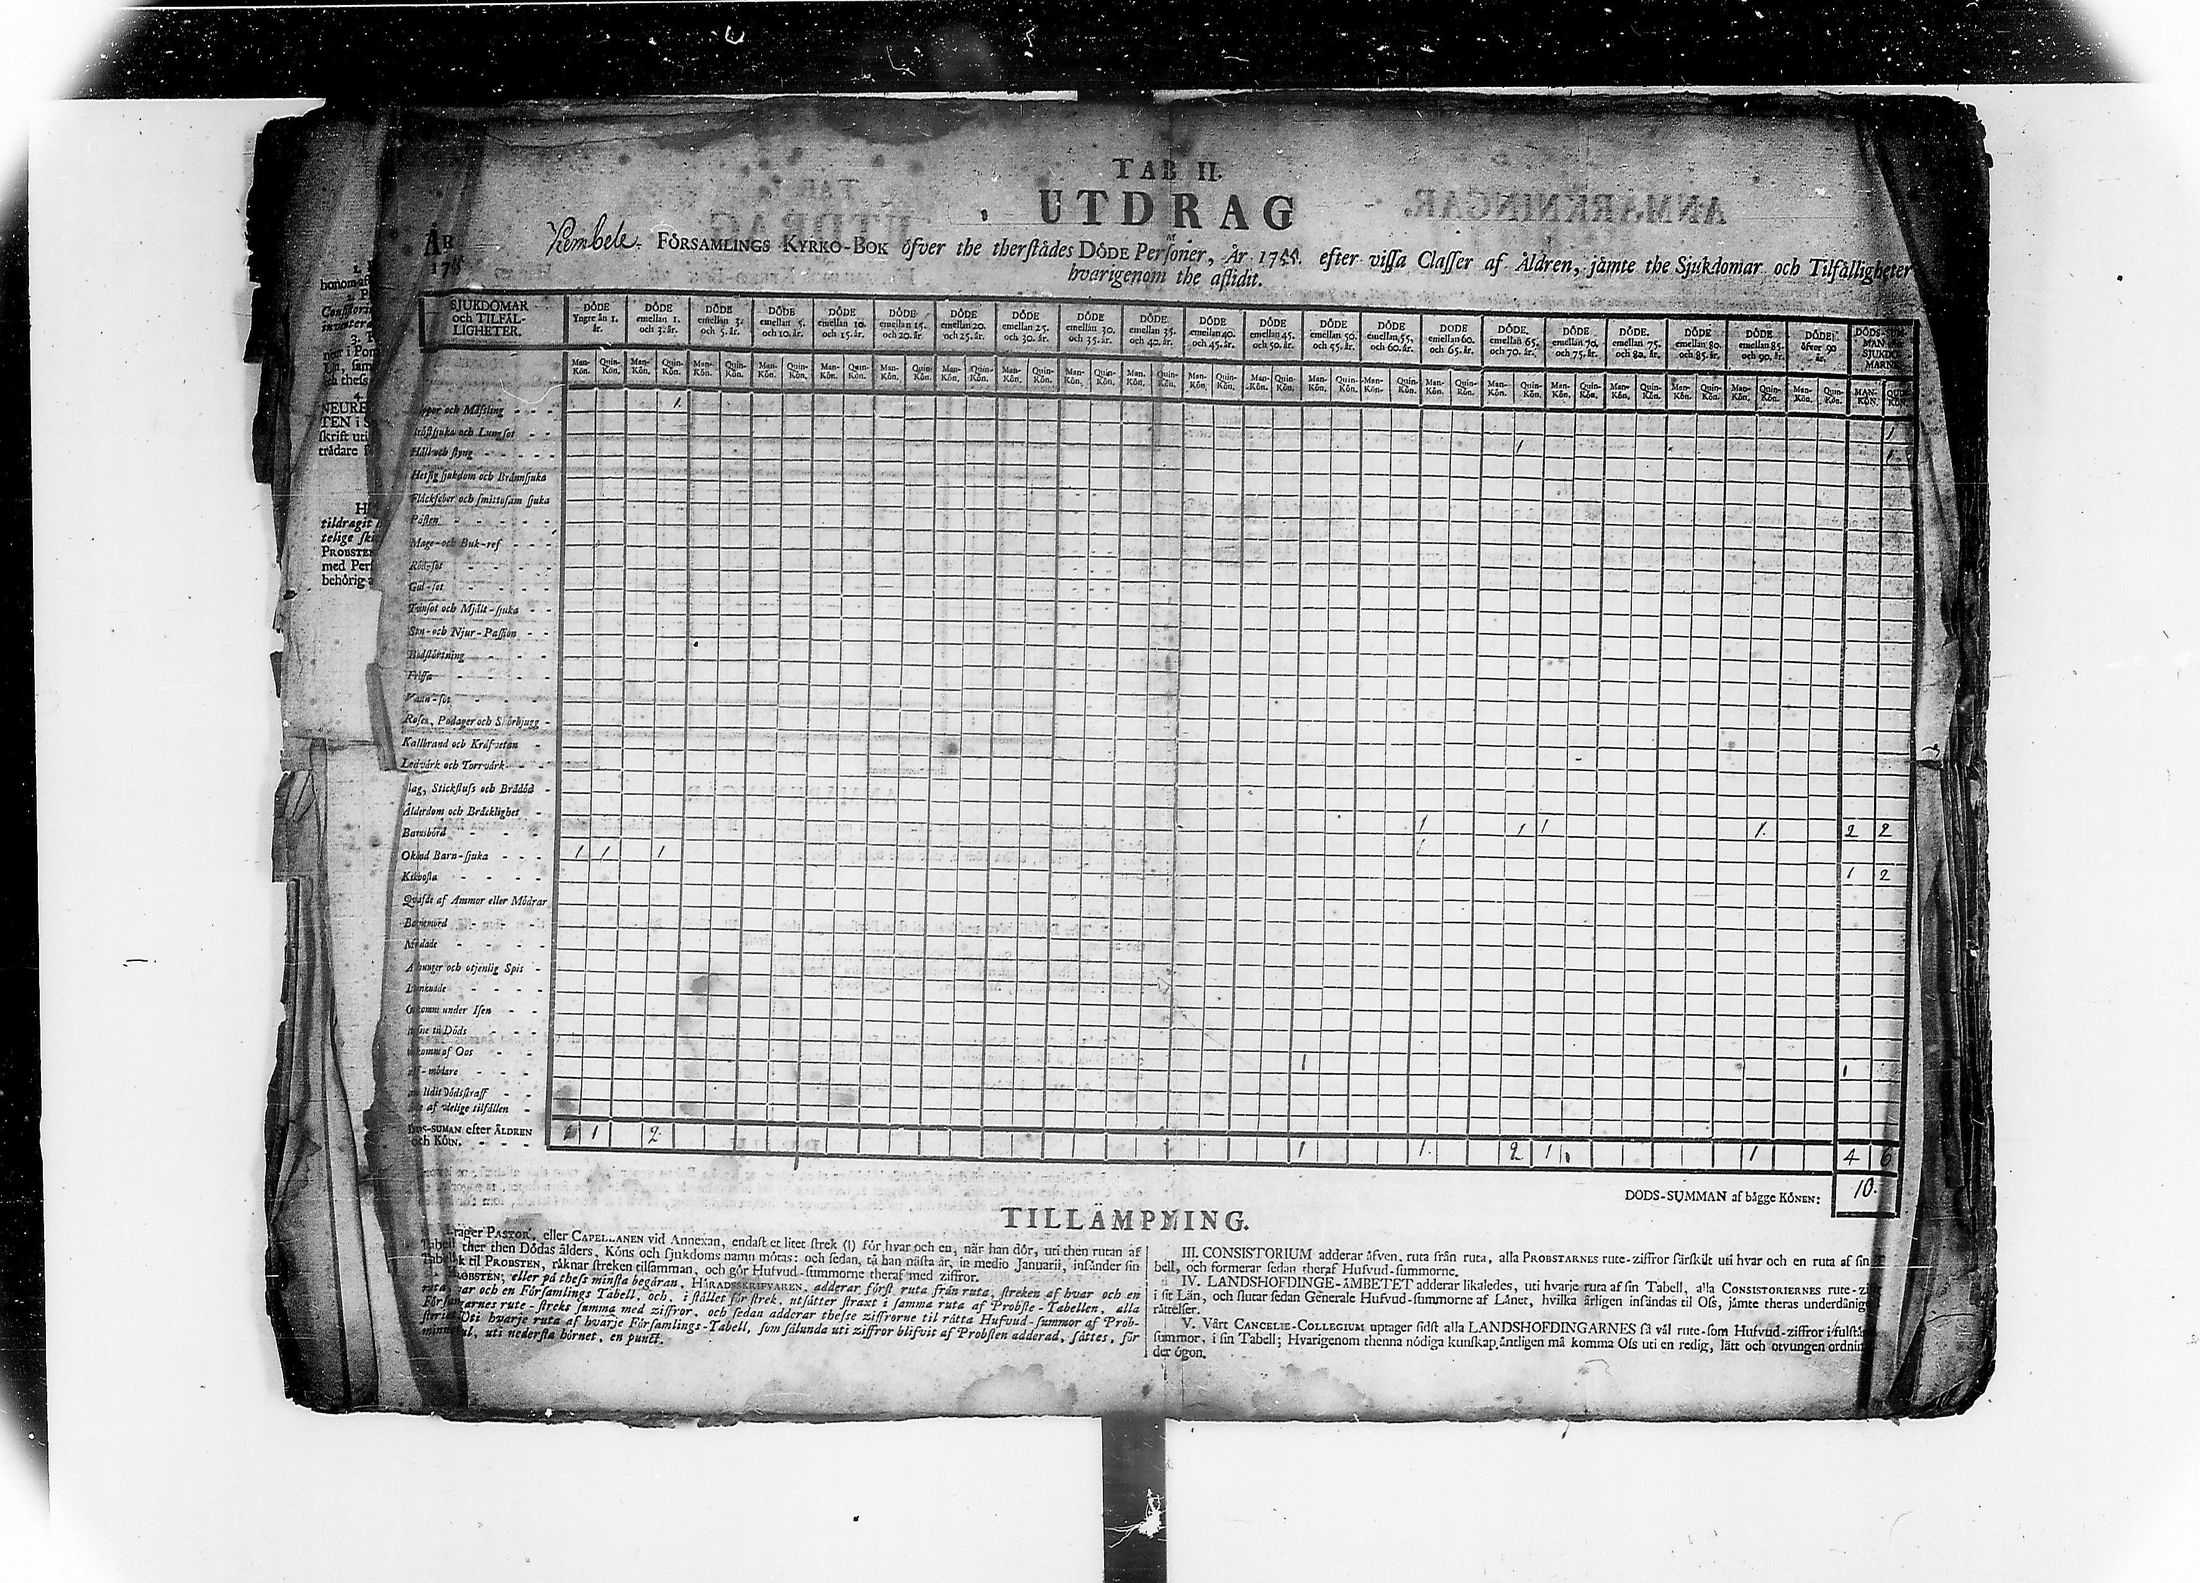 TAB II.
UTDRAG
Kembele. FÖRSAMLINGS KYRKO-BOK öfver the therstädes DÖDE Personer, År 1755. efter vissa Classer af Åldren, jämte the Sjukdomar och Tilfälligheter
hvarigenom the aflidit.
ÅR
17
SJUKDOMAR och TILFÄL-LIGHETER.
DÖDE Yngre än 1. år.
DÖDE emellan 1. och 3. år.
DÖDE emellan 3. och 5. år.
DÖDE emellan 5. och 10. år.
DÖDE emellan 10. och 15. år.
DÖDE emellan 15. och 20. år.
DÖDE emellan 20. och 25. år.
DÖDE emellan 25. och 30. år.
DÖDE emellan 30. och 35. år.
DÖDE emellan 35. och 40. år.
DÖDE emellan 40. och 45. år.
DÖDE emellan 45. och 50. år.
DÖDE emellan 50. och 55. år.
DÖDE emellan 55. och 60. år.
DÖDE emellan 60. och 65. år.
DÖDE. emellan 65. och 70. år.
DÖDE emellan 70. och 75. år.
DÖDE. emellan 75. och 80. år.
DÖDE emellan 80. och 85. år.
DÖDE emellan 85. och 90. år.
DÖDE öfver 90 år.
DÖDS-SUM-MAN SJUKDO-MARNE
Man-Kön. Quin-Kön. Man-Kön. Quin-Kön. Man-Kön. Quin-Kön. Man-Kön. Quin-Kön. Man-Kön. Quin-Kön. Man-Kön. Quin-Kön. Man-Kön. Quin-Kön. Man-Kön. Quin-Kön. Man-Kön. Quin-Kön. Man-Kön. Quin-Kön. Man-Kön. Quin-Kön. Man-Kön. Quin-Kön. Man-Kön. Quin-Kön. Man-Kön. Quin-Kön. Man-Kön. Quin-Kön. Man-Kön. Quin-Kön. Man-Kön. Quin-Kön. Man-Kön. Quin-Kön. Man-Kön. Quin-Kön. Man-Kön. Quin-Kön. Man-Kön. Quin-Kön. MAN-KÖN. QUIN-KÖN.
och Mässling - - - 1. 1
och Lungsot - -
Håll och styng - - - - 1 1.
Hetsig sjukdom och Brännsjuka
Fläckfeber och smittosam sjuka
Pästen - - - - -
Mage-och Buk-ref - - -
Röd-sot - - - - -
Gul-sot - - - - -
Tvinsot och Mjält-sjuka - -
Sten-och Njur-Passion - -
Blodstörtning - - -
Frissa - - - - -
Vattu-sot - - - -
Rosen, Podager och Skörbjugg -
Kallbrand och Kräfvetan -
Ledvärk och Torrvärk - - -
Slag, Stickfluss och Brådöd -
Ålderdom och Bräcklighet - 1 1 1 1. 2 2
Barnsbörd - - - -
Okänd Barn-sjuka - - - 1 1 1 1 2
Kikhosta - - - - -
Qväfde af Ammor eller Mödrar
Barnemord - - -
Mördade - - - -
och otjenlig Spis -
Drunknade - - - -
under Isen - - -
til Döds - - -
af Oos - -
- mördare - - - 1 1
lidit Dödsstraff - -
af vådelige tilfällen - -
DÖDS-SUMAN efter ÅLDREN och KÖN. - - - 2 1 2. 1 1. 2 1 1 4 6
DÖDS-SUMMAN af bägge KÖNEN: 10.
TILLÄMPNING.
PASTOR, eller CAPELLANEN vid Annexan, endast et litet strek (1) för hvar och en, när han dör, uti then rutan af
Tabell ther then Dödas ålders, Köns och sjukdoms namn mötas: och sedan, tå han nästa år, in medio Januarii, insänder sin
til PROBSTEN, räknar streken tilsamman, och gör Hufvud-summorne theraf med ziffror.
PROBSTEN, eller på thess minsta begäran, HÄRADSSKRIFVAREN, adderar först ruta från ruta, streken af hvar och en
Församlings Tabell, och, i stället för strek, utsätter straxt i samma ruta af Probste-Tabellen, alla
rute-streks summa med ziffror, och sedan adderar thesse ziffrorne til rätta Hufvud-summor af Prob-
Uti hvarje ruta af hvarje Församlings-Tabell, som sålunda uti ziffror blifvit af Probsten adderad, sättes, för
uti nedersta hörnet, en punct.
III. CONSISTORIUM adderar äfven, ruta från ruta, alla PROBSTARNES rute-ziffror särskilt uti hvar och en ruta af sin
bell, och formerar sedan theraf Hufvud-summorne.
IV. LANDSHÖFDINGE-ÄMBETET adderar likaledes, uti hvarje ruta af sin Tabell, alla CONSISTORIERNES rute-
i sit Län, och slutar sedan Generale Hufvud-summorne af Länet, hvilka årligen insändas til Oss, jämte theras underdånig
rättelser.
V. Vårt CANCELIE-COLLEGIUM uptager sidst alla LANDSHÖFDINGARNES så väl rute-som Hufvud-ziffror i fulstän
summor, i sin Tabell; Hvarigenom thenna nödiga kunskap äntligen må komma Oss uti en redig, lätt och otvungen ordning
der ögon.